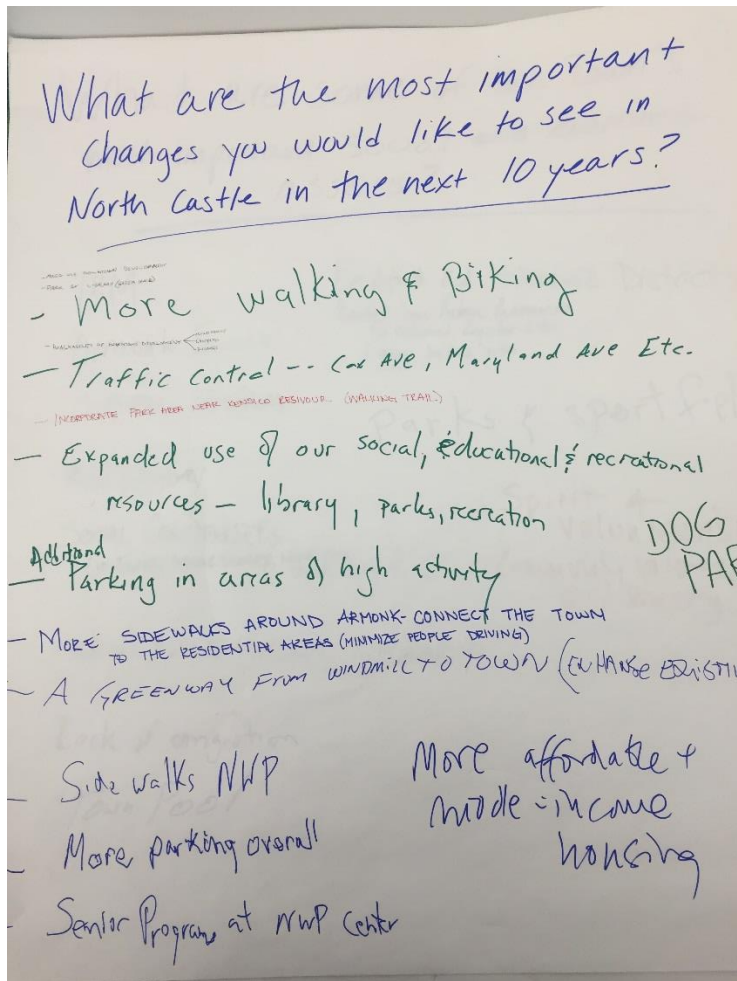 What are the most important
changes you would like to see in
North Castle in the next 10 years?
- More walking & Biking
- Traffic Control -- Cox Ave, Maryland Ave Etc.
- INCORPORATE PARK AREA NEAR KENSICO RESIVOUR (WALKING TRAIL)
- Expanded use of our social, educational & recreational
resources - library, parks, recreation
DOG
PAR
Additional
- Parking in areas of high activity
- MORE SIDEWALKS AROUND ARMONK - CONNECT THE TOWN
TO THE RESIDENTIAL AREAS (MINIMIZE PEOPLE DRIVING)
- A GREENWAY FROM WINDMILL TO TOWN (ENHANSE EXISTI
- Side walks NWP
More affordable +
mode-income
housing
- More parking overall
- Senior Programs at NWP Center